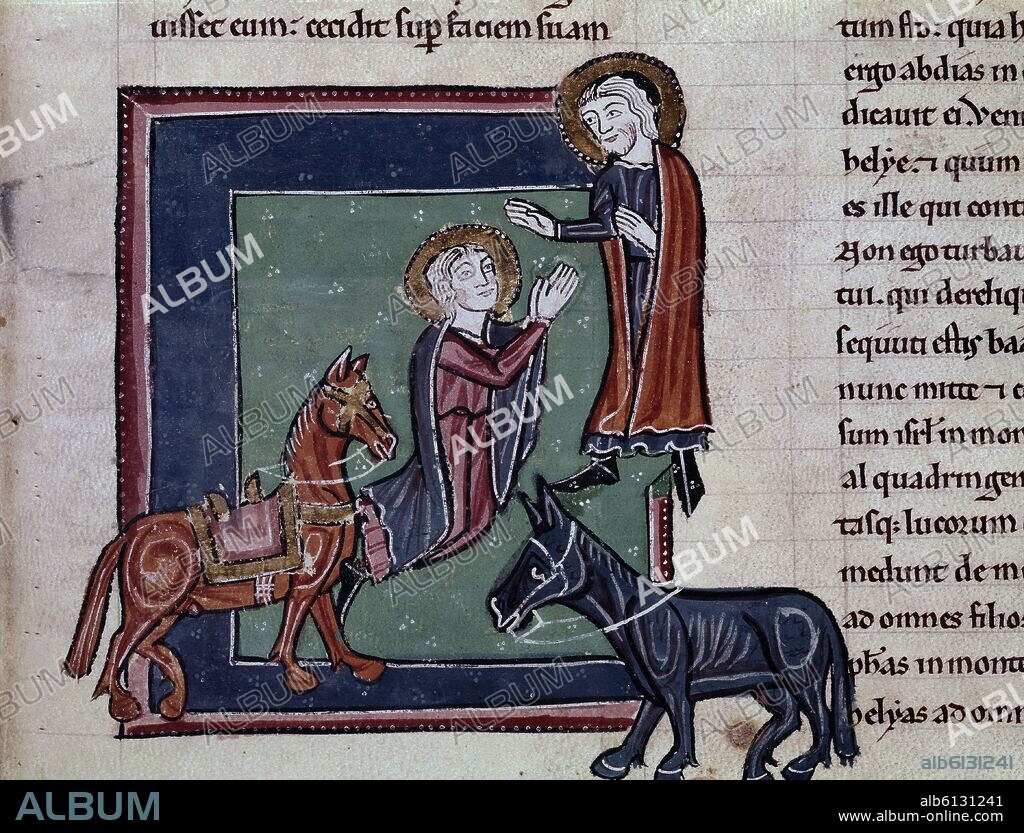 uisset eum: cecidit sup faciem suam
ergo abdias in
dicauit ei. Ven
helye. &amp; quum
es ille qui cont
Non ego turbau
tui. qui dereliq
sequuti estis baa
nunc mitte
sum isrl in mon
al quadringen
tasq: lucorum
medunt de me
ad omnes filio
phas in monte
helyas ad omn
ALBUM
alb6131241
alb6131241
www.album-online.com